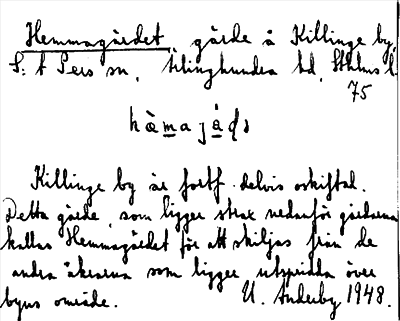 Hemmagärdet, gärde å Killinge by,
S:t Pers sn, Tiunghundra hd, Sthlms l.
75
hämajáḍɩ
Killinge by är fortf. delvis oskiftad.
Detta gärde, som ligger strax nedanför gårdarna
kallas Hemmagärdet för att skiljas från de
andra åkrarna som ligger utspridda över
byns område. U. Anderby 1948.